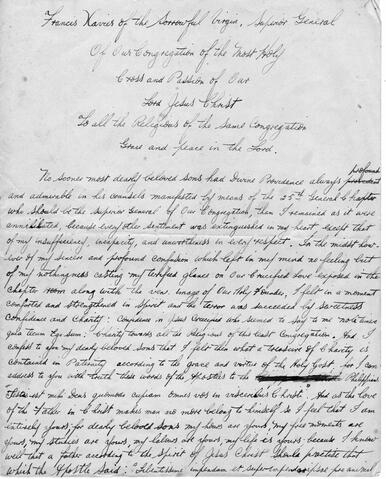 Francis Xavier of the Sorrowful Virgin, Superior General
Of Our Congregation of the Most Holy
Cross and Passion of Our
Lord Jesus Christ
To all the Religious of the Same Congregation
Grace and peace in the Lord.
No sooner most dearly beloved sons had Divine Providence always profound
and admirable in his counsels manifested by means of the 25th General Chapter
who should be the Superior General of Our Congregation, then I remained as it were
annihilated, because every other sentiment was extinguished in my heart except that
of my insufficiency, incapacity, and unworthiness in every respect. In the midst how-
ever of my sincere and profound confusion which left in my mind no feeling but
of my nothingness casting my terrified glance on Our Crucified Love exposed in the
Chapter room along with the image of Our Holy Founder, I felt in a moment
comforted and strengthened in Spirit and the terror was succeeded by sweetness
Confidence and Charity: Confidence in Jesus Crucified who seemed to say to me noli timere
ego tecum sum: Charity towards all the Religious of this Congregation. And I
confess to you my dearly beloved sons that I felt then what a treasure of Charity is
contained in Paternity according to the grace and virtue of the Holy Gost, for I can
address to you with truth these words of the Apostles to the Philippians
mihi Deus quomodo cupiam omnes vos in visceribus Christi". And as the love
of the Father in Christ makes man no more belong to himself so I feel that I am
entirely yours; for dearly beloved sons my hours are yours, my free moments are
yours, my studies are yours, my labors are yours, my life is yours: because I know
well that a father according to the Spirit of Jesus Christ should practice that
which the Apostle said: "libentissime impendam et superimpendar ipse pro animabus